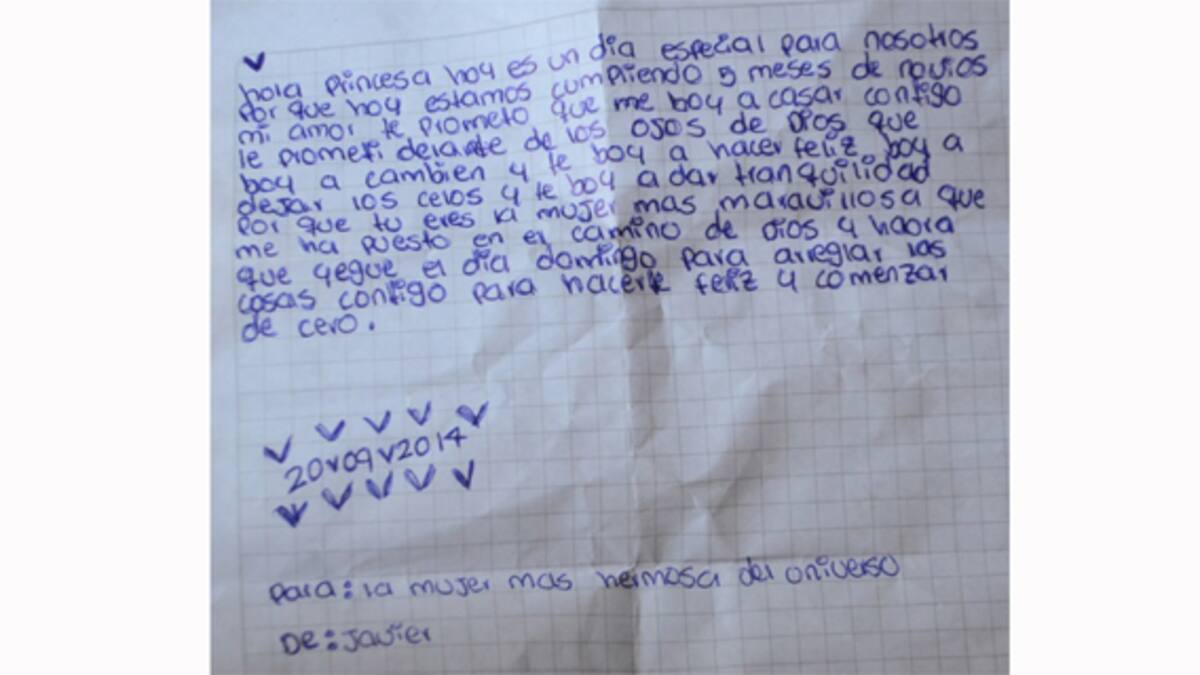 hola princesa hoy es un dia especial para nosotros
por que hoy estamos cumpliendo 5 meses de novios
mi amor te prometo que me boy a casar contigo
le prometi delante de los ojos de Dios que
boy a cambien y te boy a hacer feliz boy a
dejar los celos y te boy a dar tranquilidad
por que tu eres la mujer mas maravillosa que
me ha puesto en el camino de Dios y haora
que yegue el dia domingo para arreglar las
cosas contigo para hacerte feliz y comenzar
de cero.
20v09v2014
Para: la mujer mas hermosa del oniverso
De: Javier